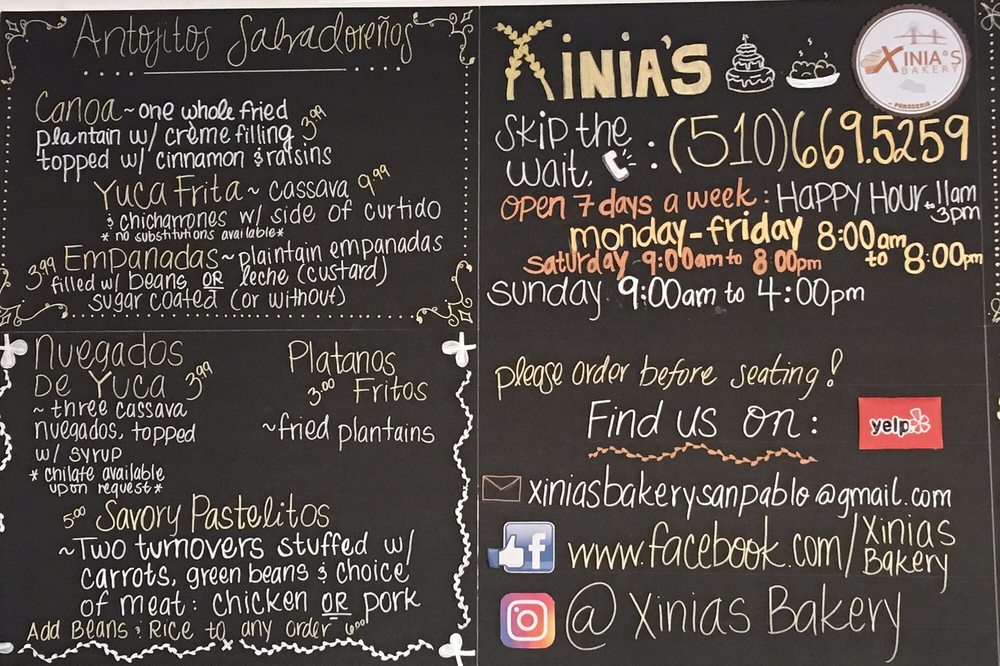 Antojitos Salvadoreños
Canoa ~ one whole fried
plantain w/ crème filling 3.99
topped w/ cinnamon & raisins
Yuca Frita ~ cassava 9.99
& chicharrones w/ side of curtido
* no substitutions available *
Empanadas ~ plaintain empanadas
3.99 filled w/ beans OR leche (custard)
sugar coated (or without)
Nuegados
De Yuca 3.99
~ three cassava
nuegados, topped
w/ syrup
* chilate available
upon request *
Platanos
3.00 Fritos
~fried plantains
5.00 Savory Pastelitos
~Two turnovers stuffed w/
carrots, green beans & choice
of meat: chicken OR pork
Add Beans & Rice to any order 6.00
XINIA'S
XINIA'S
BAKERY
PANADERIA
Skip the
wait, : (510)669.5259
open 7 days a week : HAPPY HOUR 11am
to 3pm
monday-friday 8:00am
to 8:00pm
saturday 9:00am to 8:00pm
sunday 9:00am to 4:00pm
please order before seating!
Find us on :
yelp
xiniasbakerysanpablo@gmail.com
f
www.facebook.com/Xinias
Bakery
@ Xinias Bakery